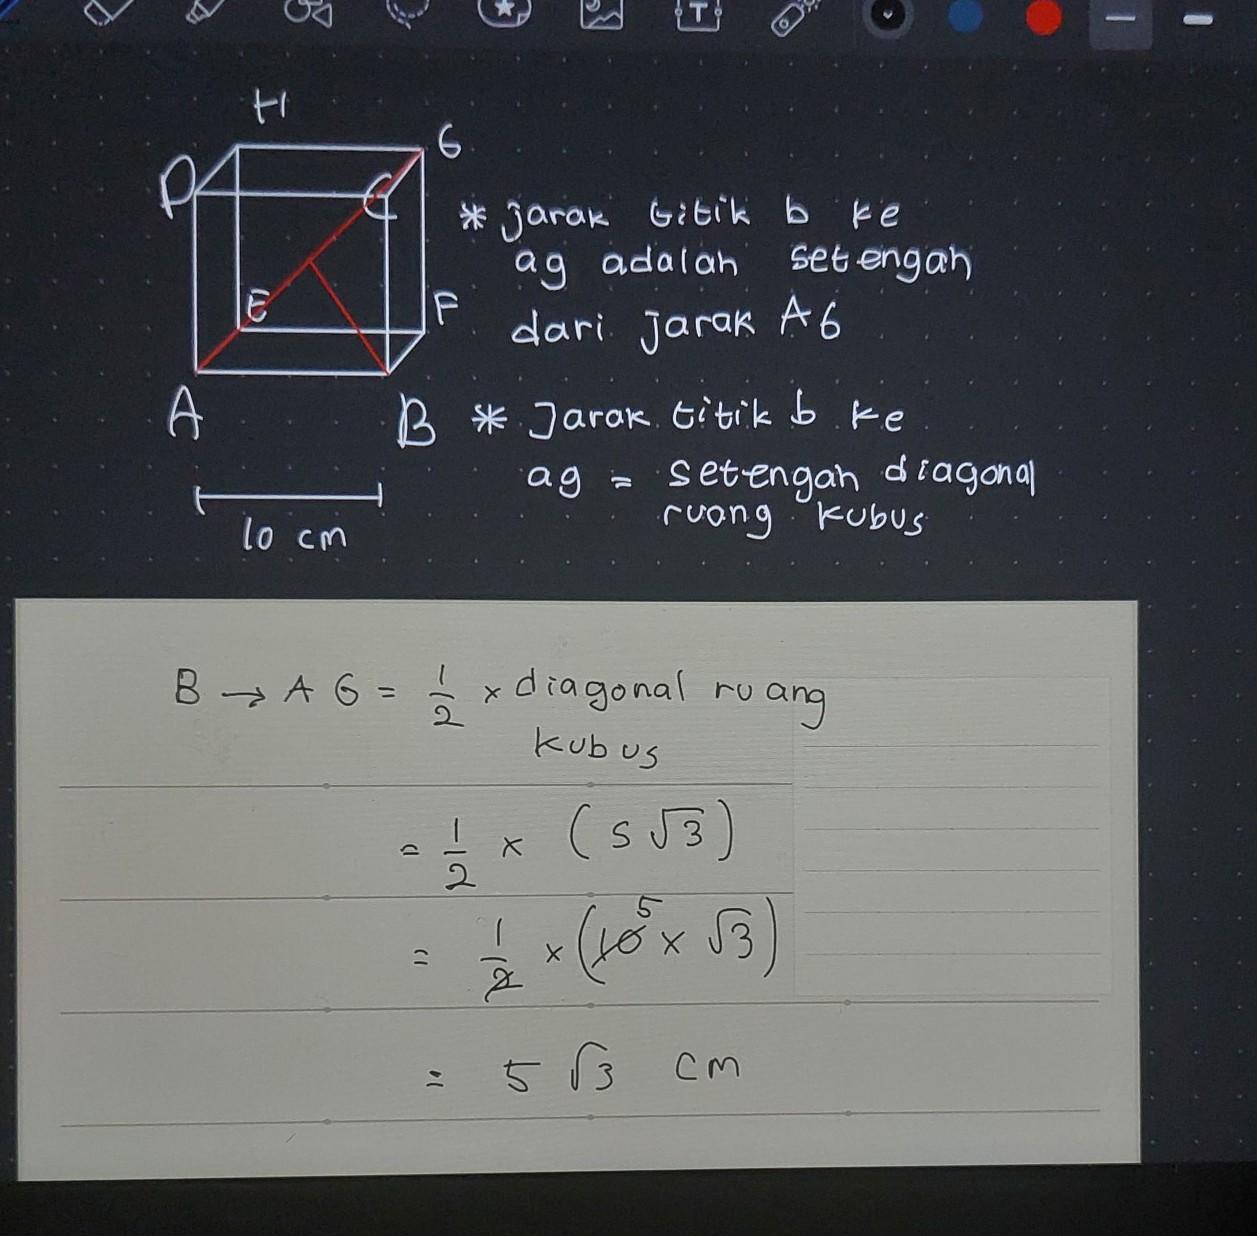 H
G
D
C
* jarak titik b ke
ag adalah setengah
dari jarak AG
E
F
A
B
* Jarak titik b ke
ag = setengah diagonal
ruang kubus
10 cm
B → A G = 1/2 × diagonal ruang
kubus
= 1/2 × (s √3)
= 1/2 × (10 5 × √3)
= 5 √3 cm